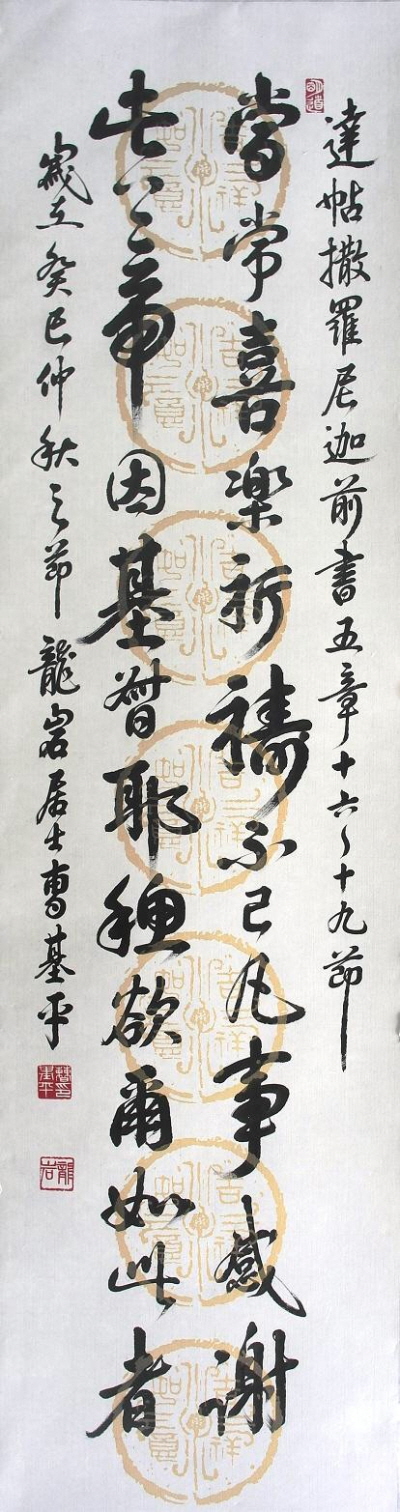 達帖撒羅尼迦前書五章十六~十九節
當常喜楽祈禱不已凡事感謝
此上帝因基督耶穌欲爾如此者
歲在癸巳仲秋之節龍岩居士曹基平
龍岩